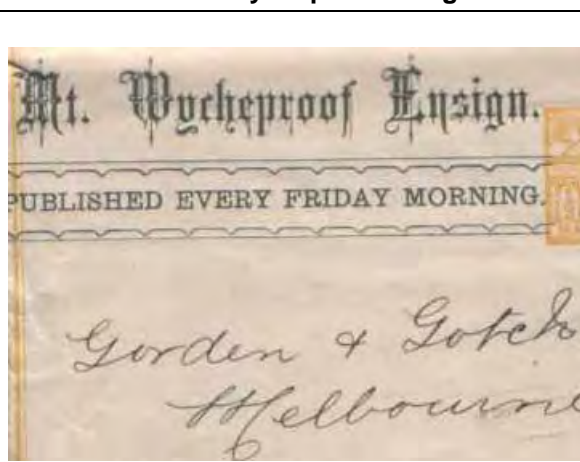 Mt. Wycheproof Ensign.
PUBLISHED EVERY FRIDAY MORNING.
Gorden & Gotch
Melbourne